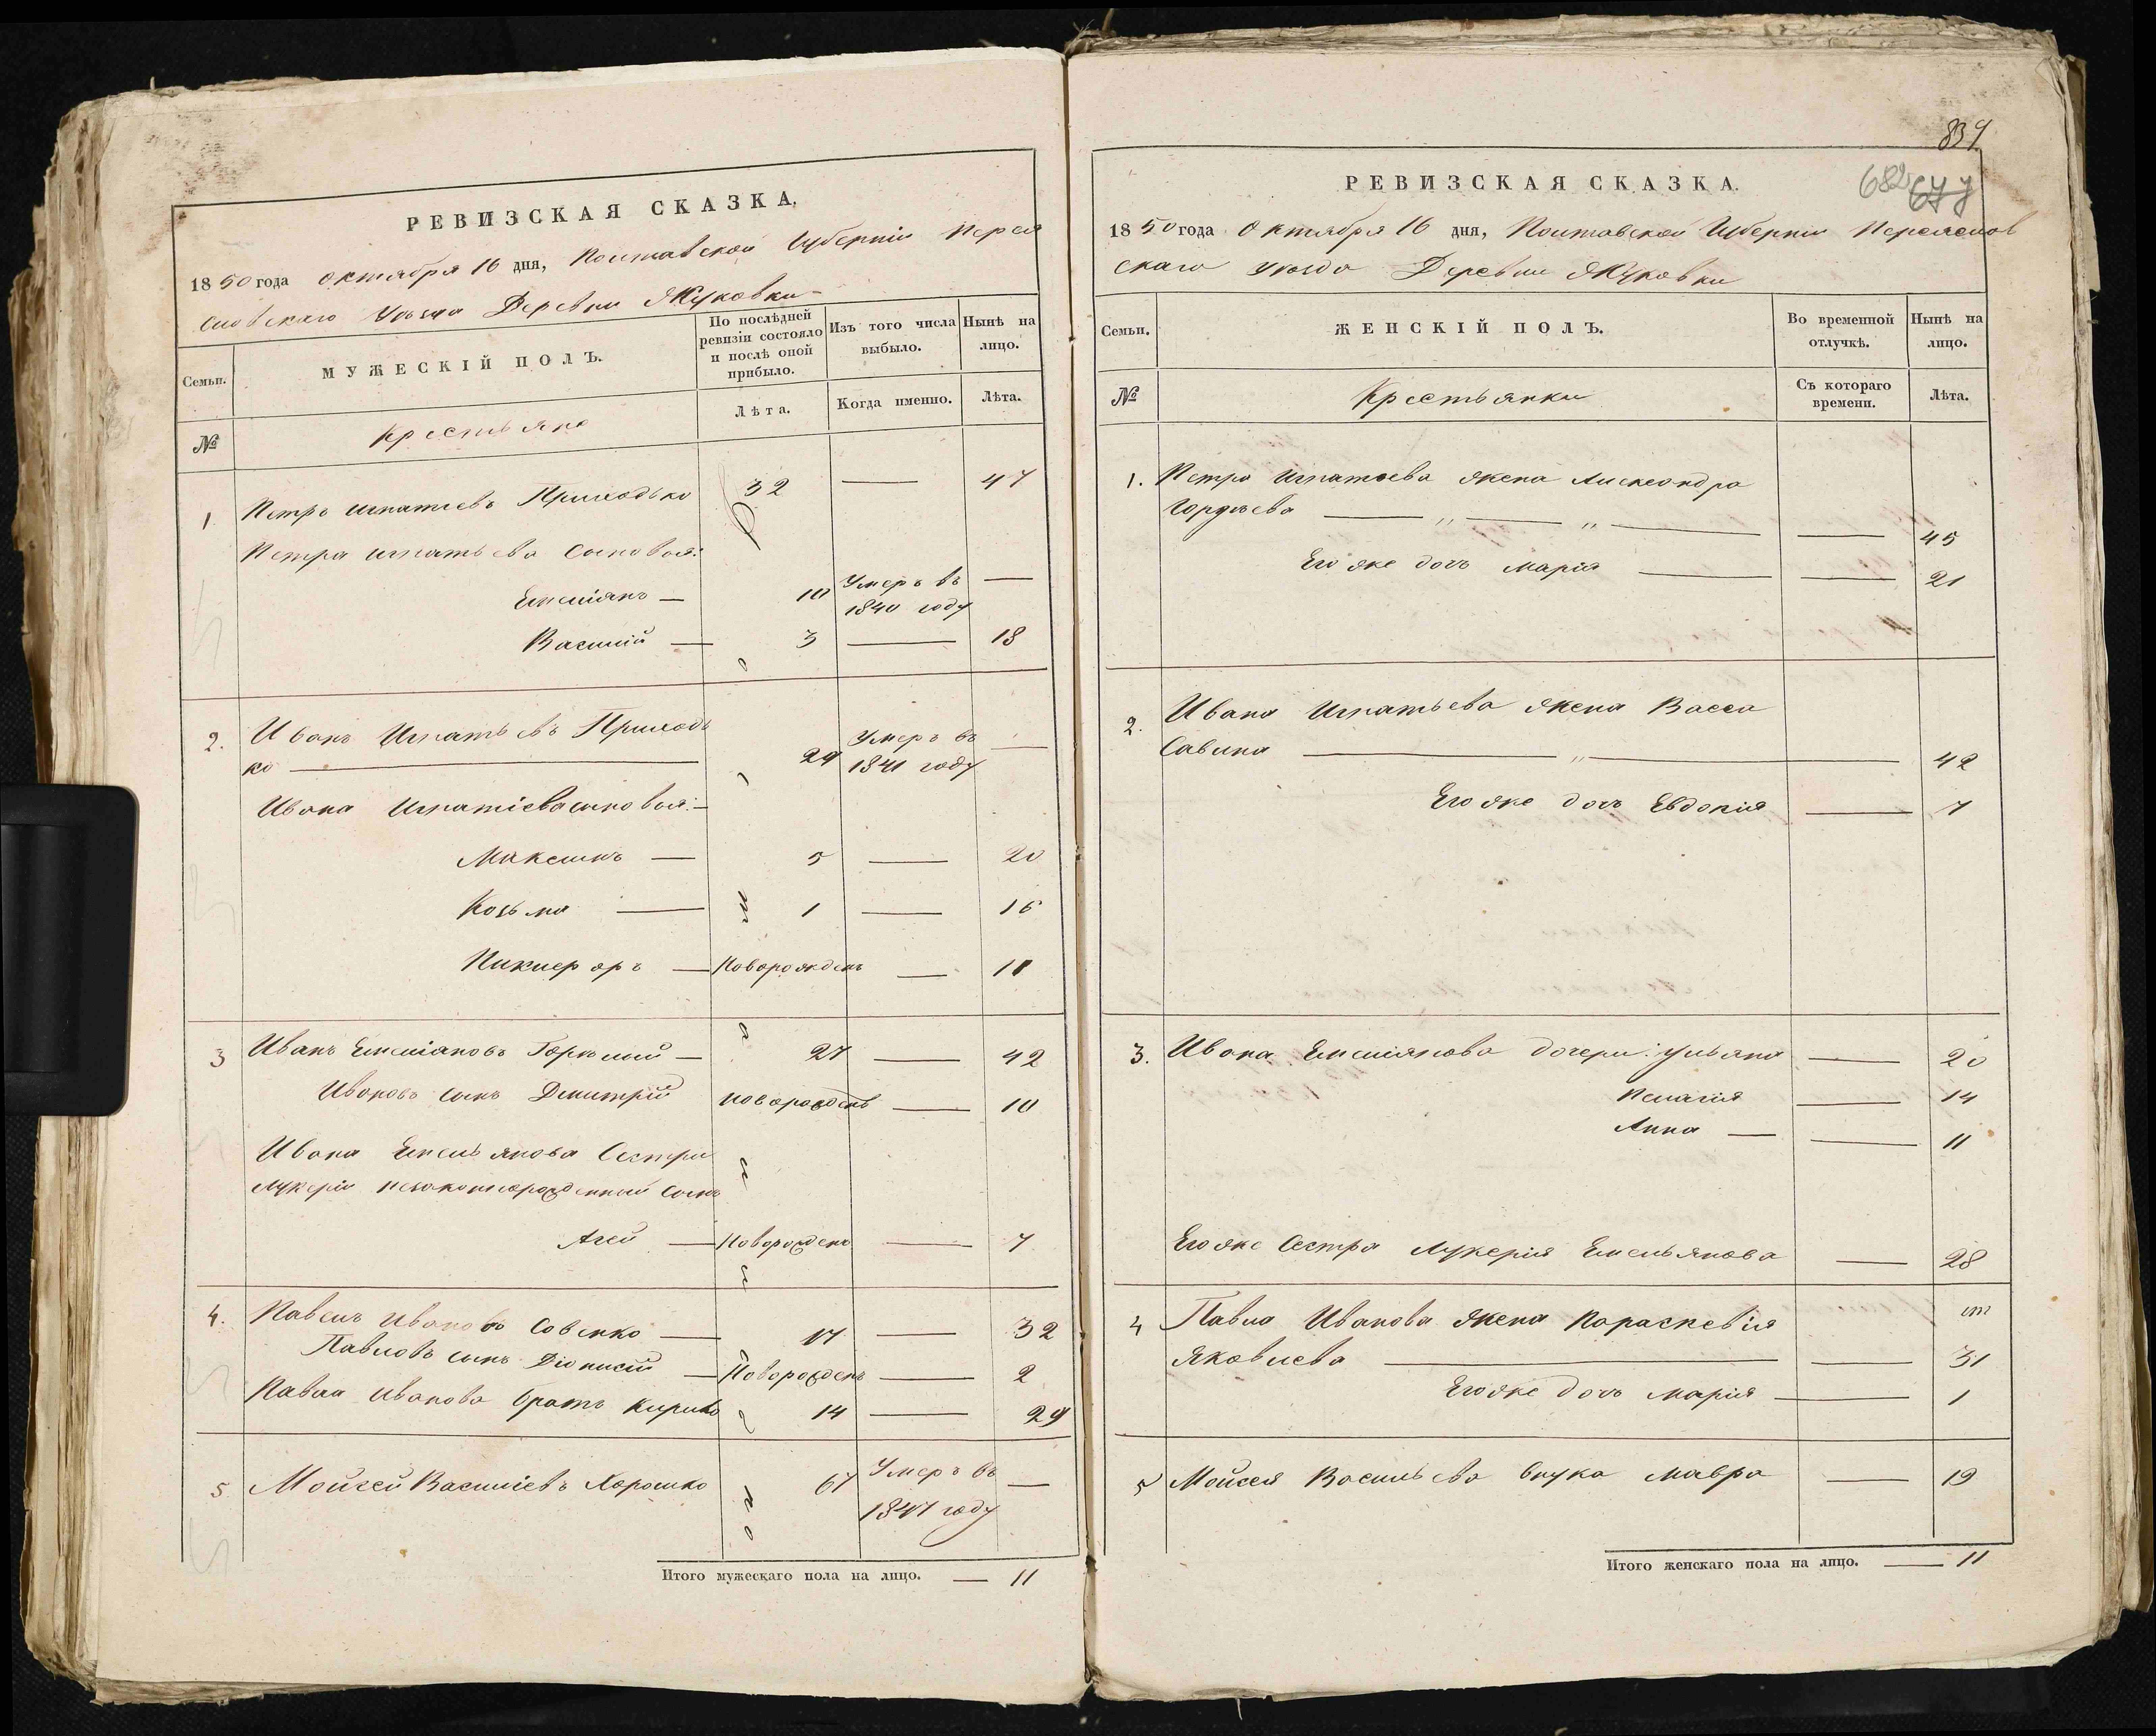 РЕВИЗСКАЯ СКАЗКА.
1850 года Октября 16 дня, Полтавской Губерніи Перея
словскаго Уѣзда Деревни Жуковки
Семьи.
МУЖЕСКІЙ ПОЛЪ.
По послѣдней ревизіи состояло и послѣ оной прибыло.
Изъ того числа выбыло.
Нынѣ на лицо.
№
Крестьяне
Лѣта.
Когда именно.
Лѣта.
1 Петръ Игнатіевъ Приходько 32 — 47
Петра Игнатьева Сыновья:
Емеліянъ — 10 Умеръ въ 1840 году —
Василій — 3 — 18
2. Иванъ Игнатьевъ Приходь
ко — 29 Умеръ въ 1841 году —
Ивана Игнатіева сыновья:
Максимъ — 5 — 20
Козьма — 1 — 16
Никиферъ — Новорожденъ — 11
3 Иванъ Емеліановъ — 27 — 42
Ивановъ сынъ Димитрій новорожденъ — 10
Ивана Емельянова Сестры
Лукеріи незаконнорожденный Сынъ
Агей — Новорожденъ — 7
4. Павелъ Ивановъ Совенко — 17 — 32
Павловъ сынъ Діонисій — Новорожденъ — 2
Павла Иванова братъ Кирило 14 — 29
5 Мойсей Василіевъ Хорошко 67 Умеръ въ 1847 году —
Итого мужескаго пола на лицо. — 11
839
682 677
РЕВИЗСКАЯ СКАЗКА.
1850 года Октября 16 дня, Полтавской Губерніи Переяслов
скаго уѣзда Деревни Жуковки
Семьи.
ЖЕНСКІЙ ПОЛЪ.
Во временной отлучкѣ.
Нынѣ на лицо.
№
Крестьянки
Съ котораго времени.
Лѣта.
1. Петра Игнатьева жена Александра
Гордѣева — „ — „ — — 45
Его же дочь Марія — — 21
2. Ивана Игнатьева жена Васса
Савина — „ — 42
Его же дочь Евдокія — 7
3. Ивана Емеліянова дочери: Ульяна — 20
Пелагія — 14
Анна — — 11
Его же Сестра Лукерія Емельянова — 28
4 Павла Иванова жена Параскевія
Яковлева — — 31
Его же дочь Марія — 1
5 Мойсея Васильева внука Мавра — 19
Итого женскаго пола на лицо. — 11